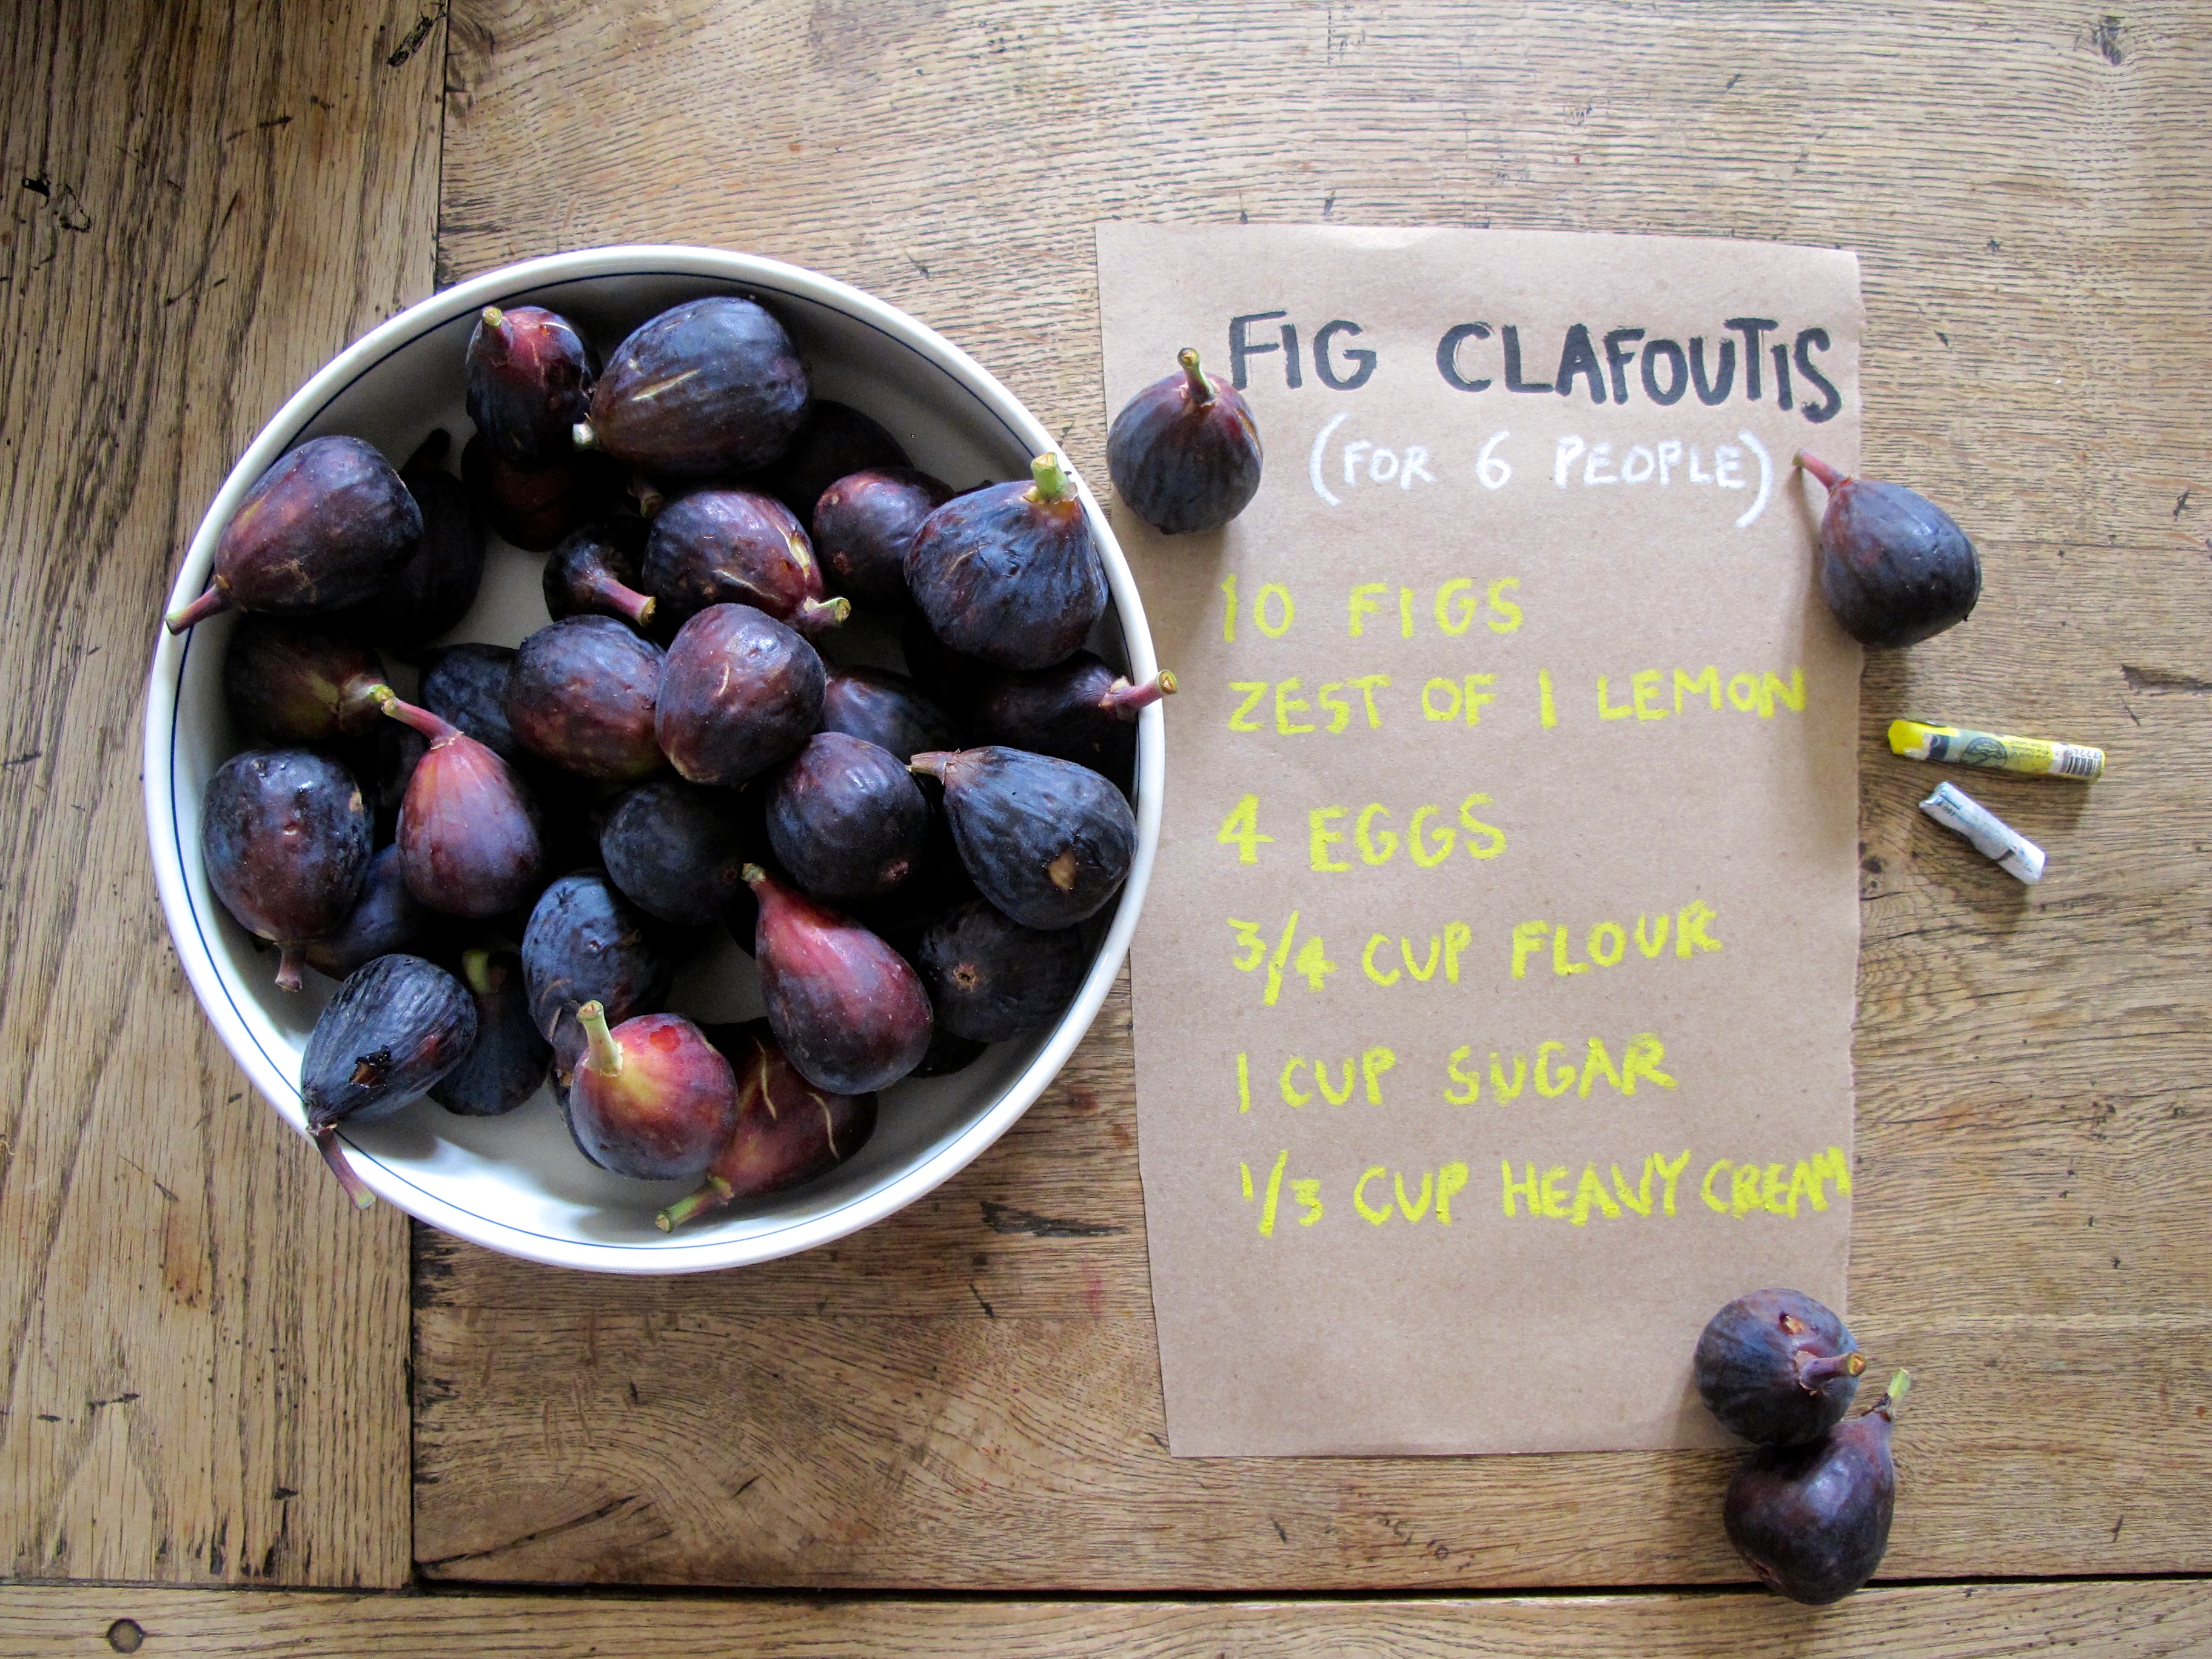 FIG CLAFOUTIS
(FOR 6 PEOPLE)
10 FIGS
ZEST OF 1 LEMON
4 EGGS
3/4 CUP FLOUR
1 CUP SUGAR
1/3 CUP HEAVY CREAM